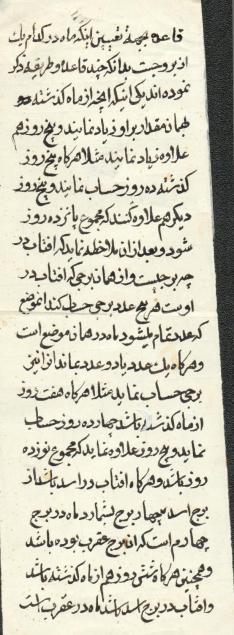 قاعده بجهة تعیین اینکه ماه در کدام یک
از بروجست بدانکه چند قاعده و طریقه ذکر
نموده اند یکی اینکه آنچه از ماه گذشته
بهمان مقدار بر او زیاد نمایند و پنج روز هم
علاوه زیاد نمایند مثلا هرکاه پنج روز
گذشته ده روز حساب نمایند و پنج روز
دیگر هم علاوه کنند که مجموع پانزده روز
شود و بعد از آن ملاحظه نماید که آفتاب در
چه برجیست و از همان برجی که آفتاب در
اوست هر پنج عدد برجی حساب کند آنموضع
که عدد تمام میشود ماه در همان موضع است
و هرکاه یک عدد یا دو عدد بماند آنرا نیز
برجی حساب نماید مثلا هرکاه هفت روز
از ماه گذشته باشد چهارده روز حساب
نماید و پنج روز علاوه نماید که مجموع نوزده
روز باشد و هرکاه آفتاب در اسد باشد از
برج اسد چهار برج بشمارد ماه در برج
چهارم است که آن برج عقرب بوده باشد
و همچنین هرکاه هشتی روز هم از ماه گذشته باشد
و آفتاب در برج اسد باشد ماه در عقرب است